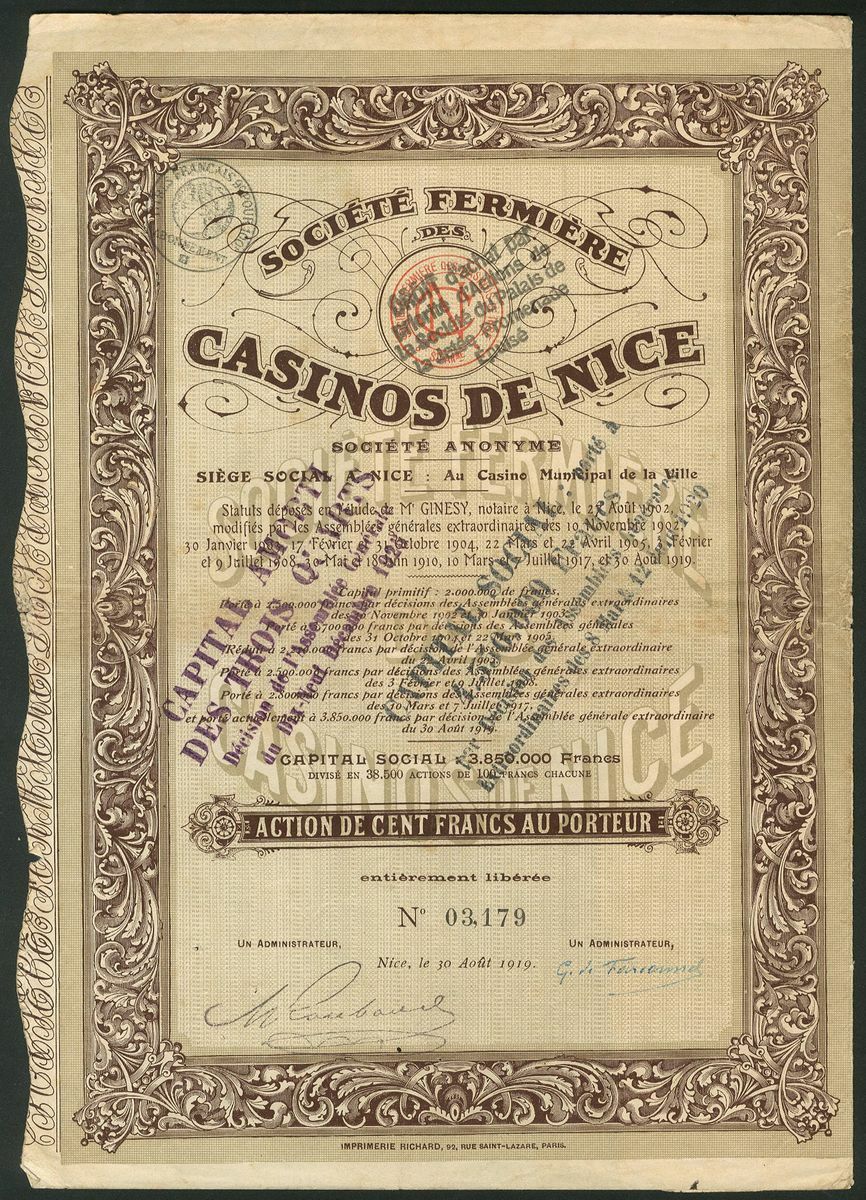 SOCIÉTÉ FERMIÈRE
DES
CASINOS DE NICE
SOCIÉTÉ ANONYME
SIÈGE SOCIAL A NICE : Au Casino Municipal de la Ville
Statuts déposés en l'étude de Mᵉ GINESY, notaire à Nice, le 27 Août 1902,
modifiés par les Assemblées générales extraordinaires des 19 Novembre 1902,
30 Janvier 17 Février et 31 Octobre 1904, 22 Mars et 22 Avril 1905, 3 Février
et 9 Juillet 1908, 30 Mai et 18 Juin 1910, 10 Mars et 7 Juillet 1917, et 30 Août 1919.
Capital primitif : 2.000.000 de francs.
Porté à 2.500.000 francs par décisions des Assemblées générales extraordinaires
des Novembre 1902 et 30 Janvier 1903.
Porté à 2.700.000 francs par décisions des Assemblées générales
des 31 Octobre 1904 et 22 Mars 1905.
Réduit à 2.210.000 francs par décision de l'Assemblée générale extraordinaire
du Avril 1905.
Porté à 2.590.000 francs par décisions des Assemblées générales extraordinaires
des 3 Février et 9 Juillet
Porté à 2.800.000 francs par décisions des Assemblées générales extraordinaires
des 10 Mars et 7 Juillet 1917.
et porté actuellement à 3.850.000 francs par décision de l'Assemblée générale extraordinaire
du 30 Août 1919.
CAPITAL SOCIAL : 3.850.000 Francs
DIVISÉ EN 38.500 ACTIONS DE 100 FRANCS CHACUNE
ACTION DE CENT FRANCS AU PORTEUR
entièrement libérée
Nº 03,179
UN ADMINISTRATEUR,
UN ADMINISTRATEUR,
Nice, le 30 Août 1919.
IMPRIMERIE RICHARD, 92, RUE SAINT-LAZARE, PARIS.
Droit d'achat par
priorité d'Actions de
la Société du Palais de
la Jetée Promenade
Épuisé
CAPITAL AMORTI
DES TROIS QUARTS
Décision de l'Assemblée Générale
du Dix-neuf Décembre 1929
CAPITAL SOCIAL : porté à
Francs
des Assemblées générales
Extraordinaires des 8 & 12 1920
SOCIÉTÉ FERMIÈRE
CASINOS DE NICE